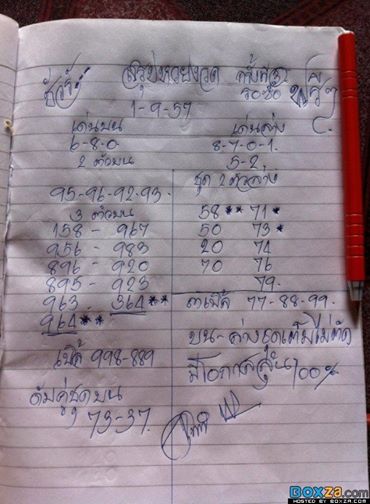 สรุปหวยงวด
1-9-57
เด่นบน
6-8-0
2 ตัวบน
95-96-92-93.
3 ตัวบน
158 - 967
956 - 983
896 - 920
895 - 923
963 - 364**
964**
เบิ้ล 998-889
73-37.
เด่นล่าง
8-7-0-1.
5-2
ชุด 2 ตัวล่าง
58** 71*
50 73*
20 74
70 76
79.
77-88-99.
บน-ล่างชุดเต็มไม่ตัด
มีโอกาสลุ้น 100%
BOXZA.com
HOSTED BY BOXZA.COM